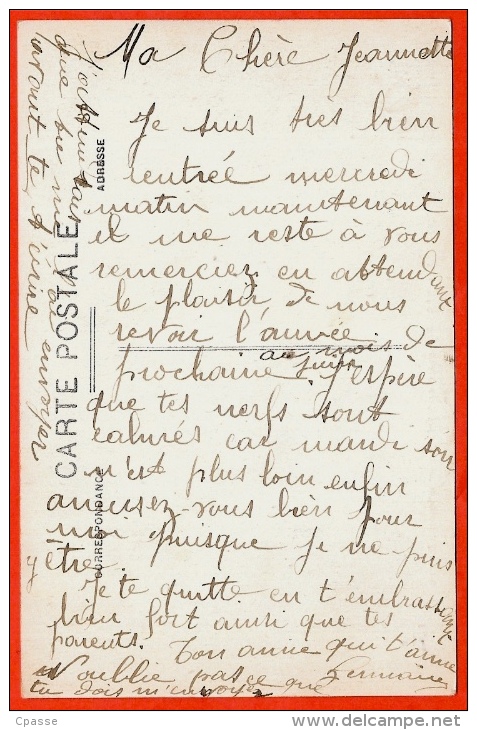 Ma Chère Jeannette
Je suis très bien
rentrée mercredi
matin maintenant
il me reste à vous
remerciez en attendant
le plaisir de nous
revoir l'année
au mois de
juin
prochaine j'espère
que tes nerfs sont
calmés car mardi soir
n'est plus loin enfin
amusez-vous bien pour
moi puisque je ne puis
y être.
Je te quitte en t'embrassant
bien fort ainsi que tes
parents. Ton amie qui t'aime
Germaine
N'oublie pas ce que
tu dois m'envoyer
J'attendais
que tu me
envoyer
avant te t'écrire
CARTE POSTALE
CORRESPONDANCE
ADRESSE
Cpasse
www.delcampe.net